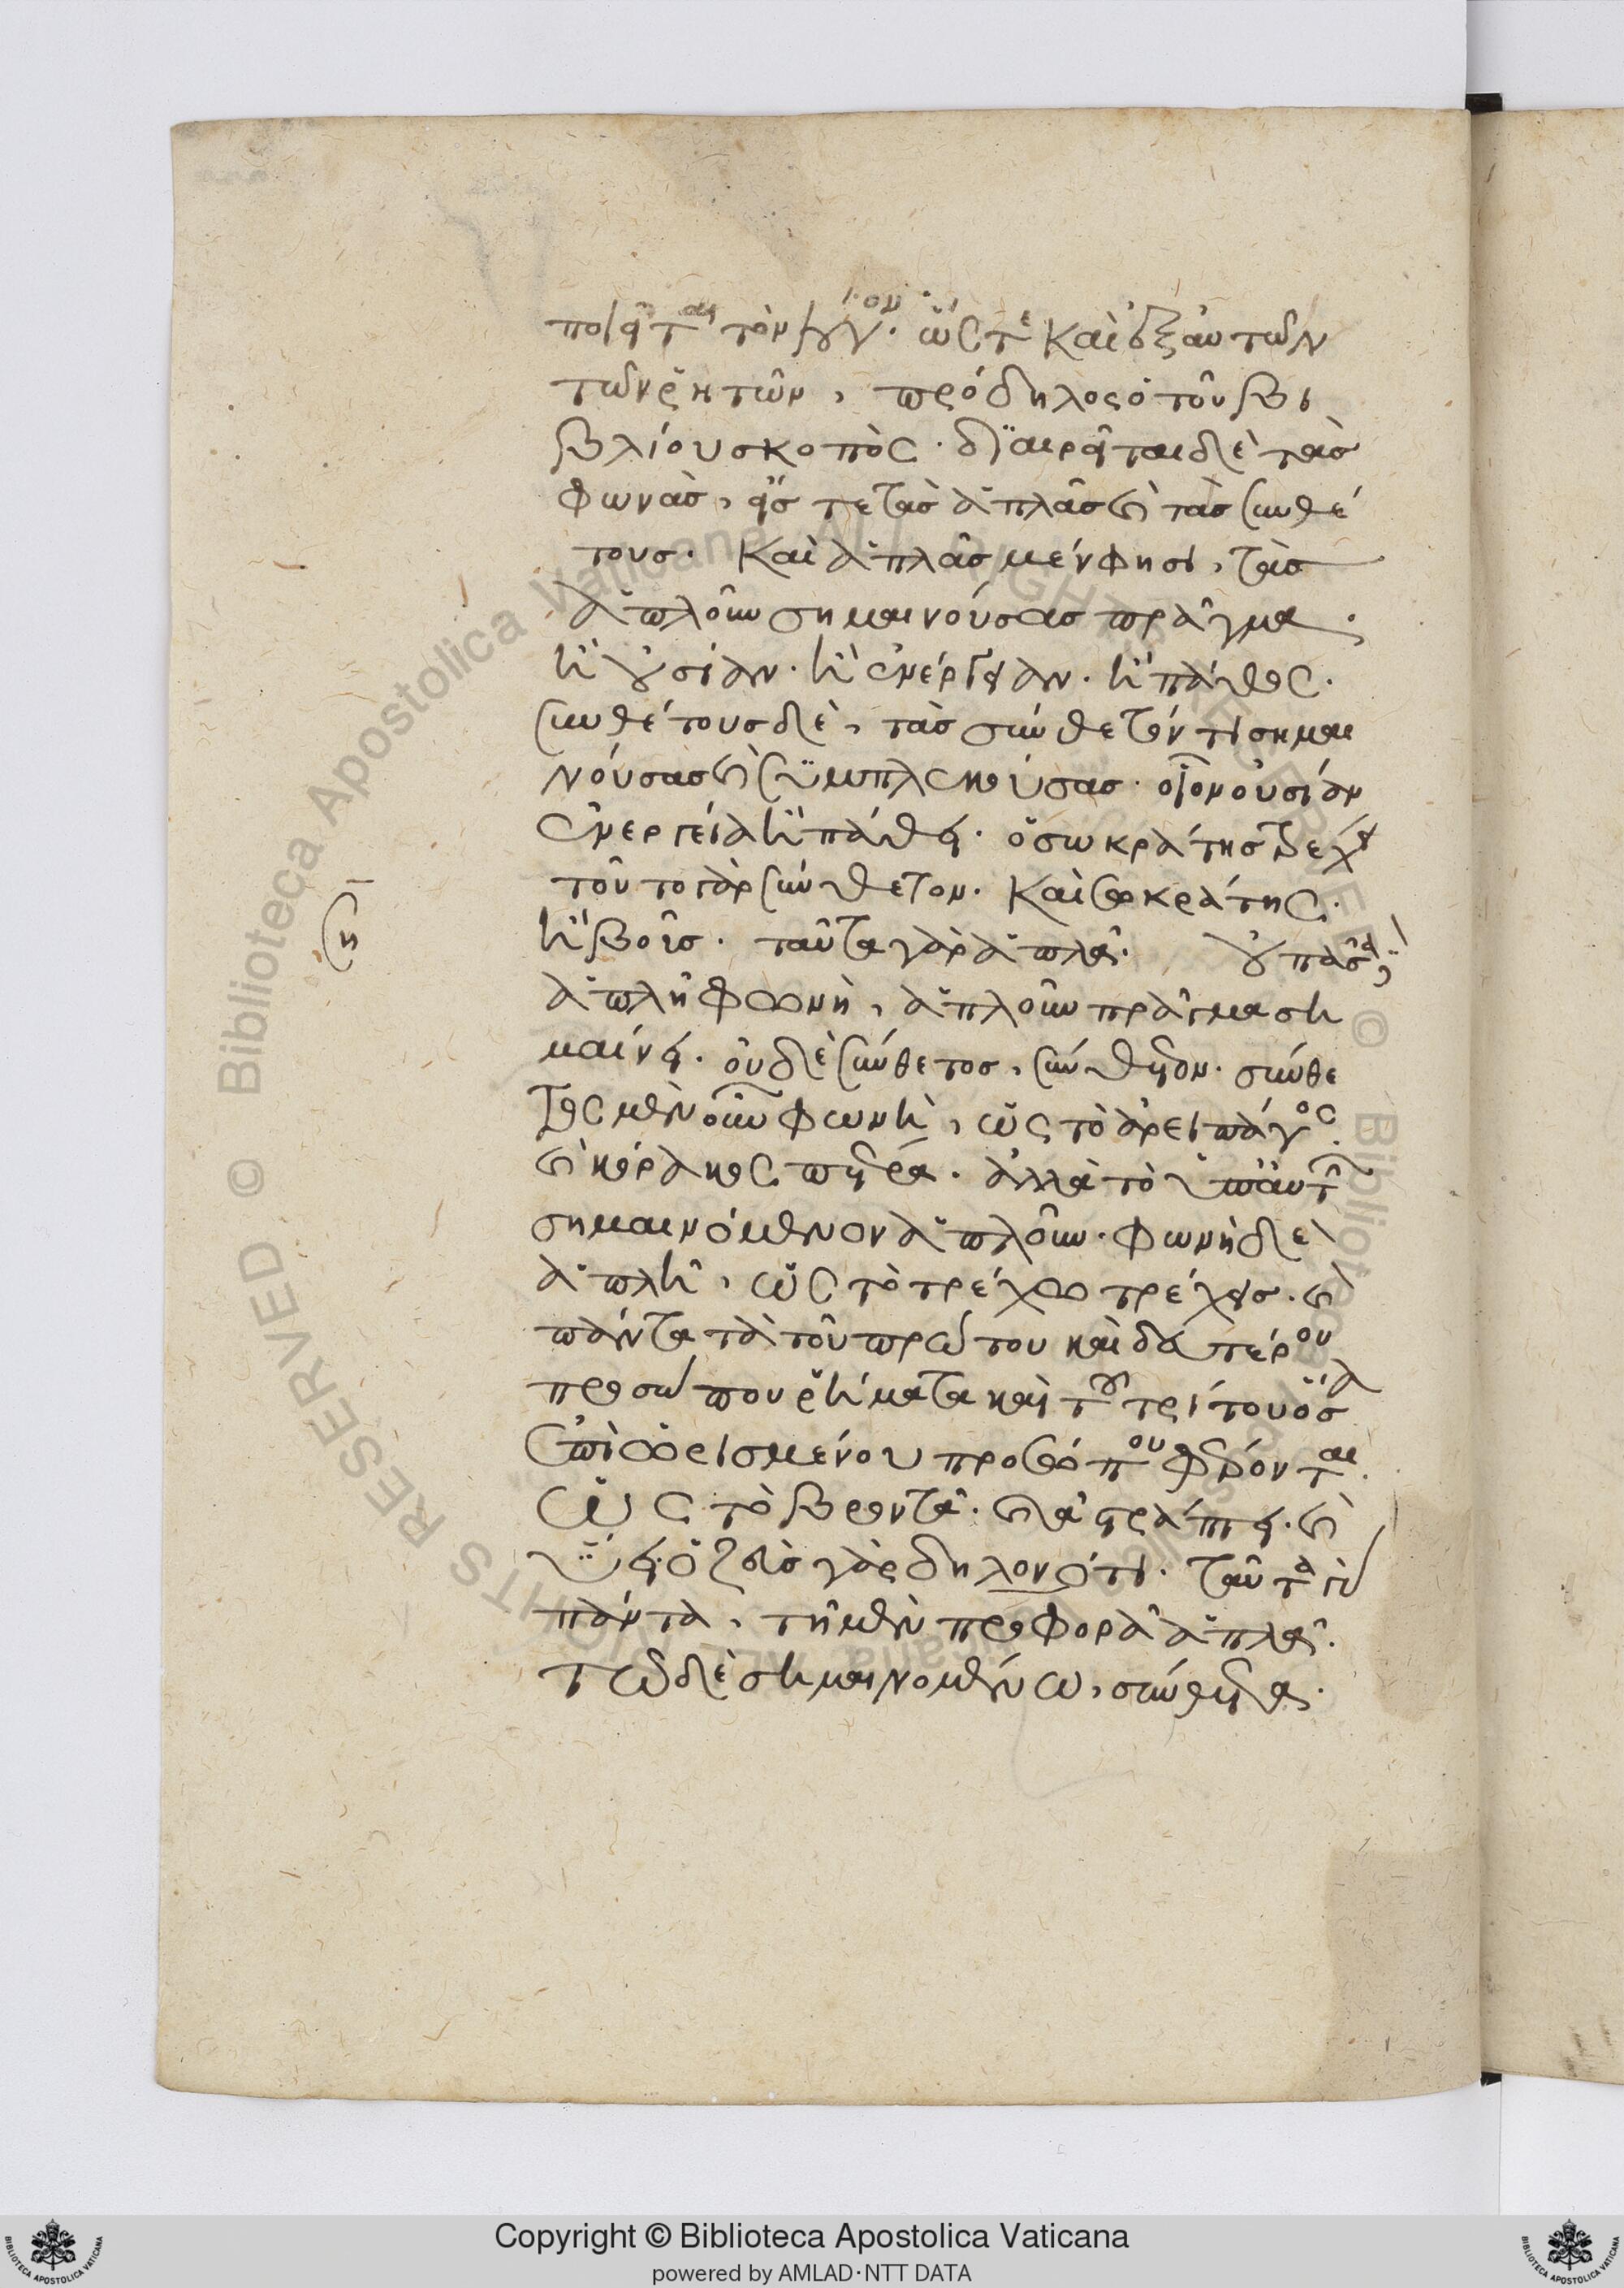 ποιεῖται τὸν λόγον. ὥστε καὶ ἐξ αὐτῶν
τῶν ῥητῶν, πρόδηλος ὁ τοῦ βι
βλίου σκοπὸς. διαιρεῖται δὲ τὰς
φωνὰς, εἴς τε τὰς ἁπλᾶς καὶ τὰς συνθέ
τους. καὶ ἁπλᾶς μέν φησι, τὰς
ἁπλοῦν σημαινούσας πρᾶγμα.
ἢ οὐσίαν. ἢ ἐνέργειαν. ἢ πάθος.
συνθέτους δὲ, τὰς σύνθετόν τι σημαι
νούσας καὶ συμπλεκούσας. οἷον οὐσίαν
ἐνεργείᾳ ἢ πάθει. ὁ σωκράτης τρέχει
τοῦτο γὰρ σύνθετον. καὶ σωκράτης.
ἢ βοῦς. ταῦτα γὰρ ἁπλᾶ. οὐ πᾶσα δὲ
ἁπλῆ φωνὴ, ἁπλοῦν πρᾶγμα ση
μαίνει. οὐδὲ σύνθετος, σύνθετον. σύνθε
τος μὲν οὖν φωνὴ, ὡς τὸ ἀρειπάγος.
καὶ κόρακος πέτρα. ἀλλὰ τὸ ὑπ' αὐτῆς
σημαινόμενον ἁπλοῦν. φωνὴ δὲ
ἁπλῆ, ὡς τὸ τρέχω τρέχεις. καὶ
πάντα τὰ τοῦ πρώτου καὶ δευτέρου
προσώπου ῥήματα καὶ τοῦ τρίτου ὅσα
ἐπὶ ὡρισμένου προσώπου φέρονται.
ὡς τὸ βροντᾷ. καὶ ἀστράπτει. καὶ
ὕει. ὁ ζεὺς γὰρ δηλονότι. ταῦτα γὰρ
πάντα, τῇ μὲν προφορᾷ ἁπλᾶ.
τῷ δὲ σημαινομένῳ, σύνθετα.
Copyright © Biblioteca Apostolica Vaticana
powered by AMLAD·NTT DATA